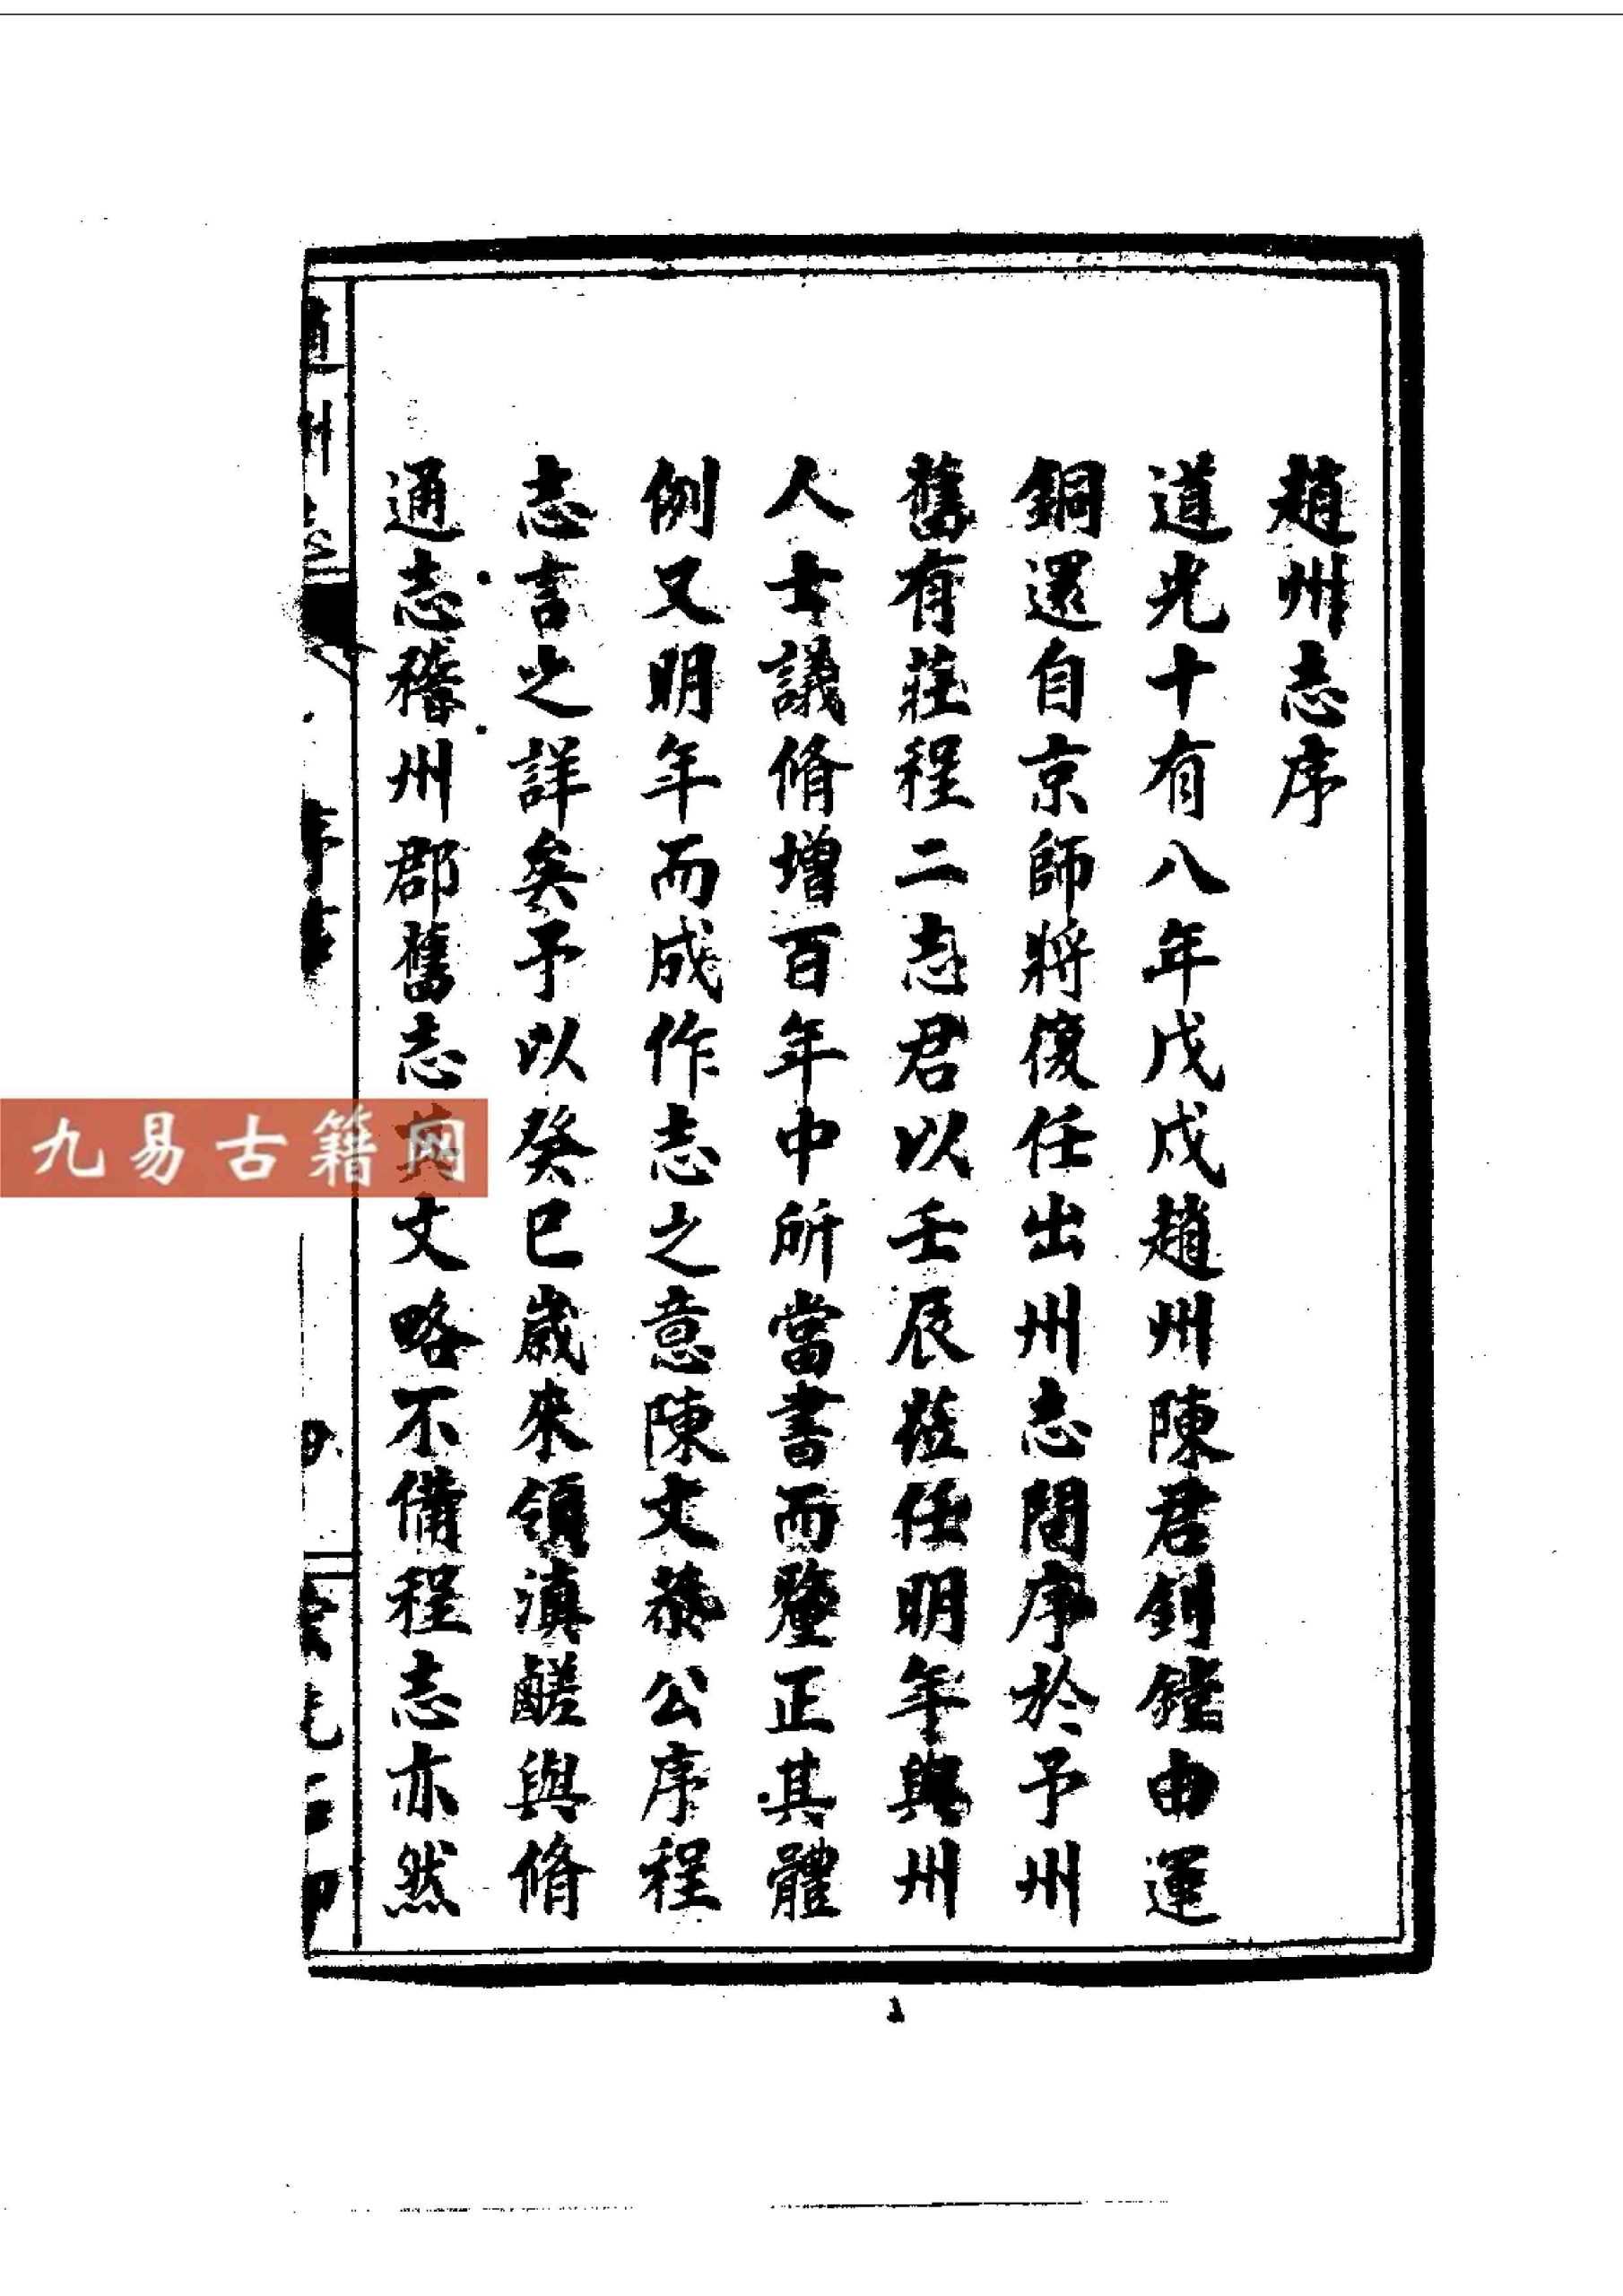 趙州志序
道光十有八年戊戌趙州陳君釗鏜由運
銅還自京師將復任出州志問序於予州
舊有莊程二志君以壬辰蒞任明年與州
人士議脩增百年中所當書而釐正其體
例又明年而成作志之意陳文恭公序程
志言之詳矣予以癸巳歲來領滇鹺與脩
通志稽州郡舊志其文略不備程志亦然
序
九易古籍网